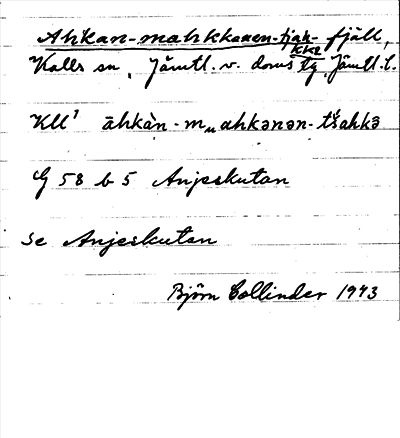 Ahkan-mahkkenen-tjah- fjäll,
kke
Kalls sn, Jämtl. v. doms tg, Jämtl. l.
KU¹ āhkàn - m„ahkənən- tšahkə̄
G 58 b 5 Anjeskutan
se Anjeskutan
Björn Collinder 1943